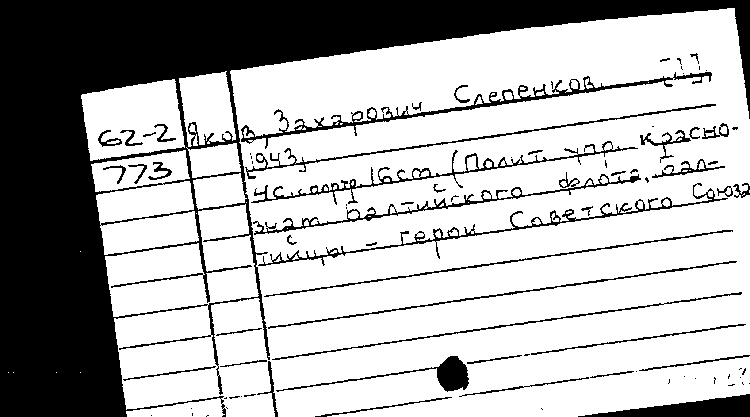 62-2 Яков, Захарович Слепенков. [1]
773 [1943]
4с. с портр. 16см. (Полит. упр. красно-
знам. балтийского флота, бал-
тийцы - герои Советского Союза